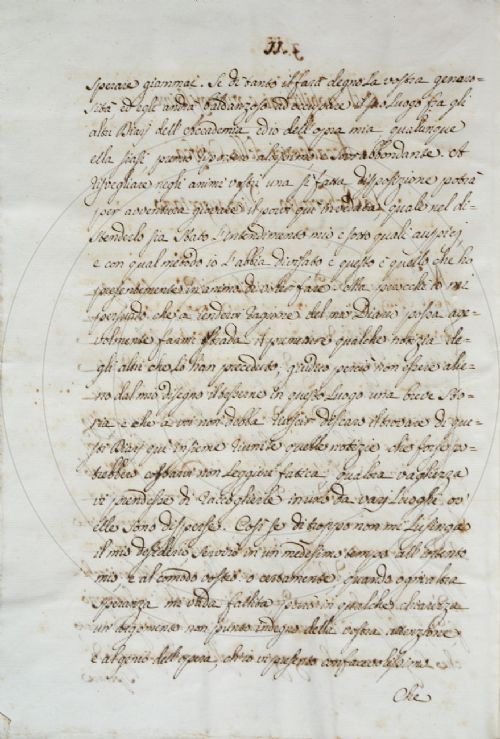 II
sperare giammai. Se di tanto il farà degno la vostra genero-
sità ed egli andrà baldanzoso ad occupare il suo luogo fra gli
altri Diarj dell'Accademia, ed io dell'opra mia qualunque
ella siasi premio riporterò altissimo e sovrabbondante. A
risvegliare negli animi vostri una sì fatta disposizione potrà
per avventura giovare il porvi qui in veduta quale nel di-
stenderlo sia stato l'intendimento mio e sotto quali auspicj
e con qual metodo io l'abbia dirizzato e questo è quello che ho
presentemente in animo di voler fare. Ma perocchè io mi
persuado che a render ragione del mio Diario possa age-
volmente farmi strada il premettere qualche notizia de-
gli altri che lo han preceduto; giudico perciò non essere alie-
no dal mio disegno il tesserne in questo luogo una breve Sto-
ria e che a voi non debba riuscir discaro il trovare di que-
sti Diarj qui insieme riunite quelle notizie che forse po-
trebbe costarvi non leggiera fatica qualora vaghezza
vi prendesse di raccoglierle in uno da varj luoghi ov'
elle sono disperse. Così se di troppo non mi lusinga
il mio desiderio servirò in un medesimo tempo all'intento
mio e al comodo vostro o certamente quando ogni altra
speranza mi vada fallita porrò in qualche chiarezza
un argomento non punto indegno della vostra attenzione
e al genio dell'opera, ch'io vi presento confacevolissimo.
Che